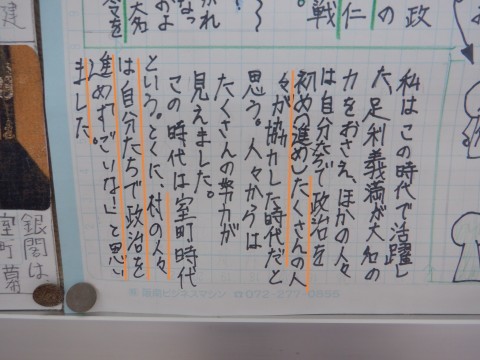 政
の
仁
戦
大名
令を
建
私はこの時代で活躍し
た、足利義満が大名の
力をおさえ、ほかの人々
は自分たちで政治を
初め進めしたくさんの人
々が協力した時代だと
思う。人々からは
たくさんの努力が
見えました。
この時代は室町時代
という。とくに、村の人々
は自分たちで政治を
進めすごいな!と思い
ました。
銀閣は
室町幕
072-277-0656